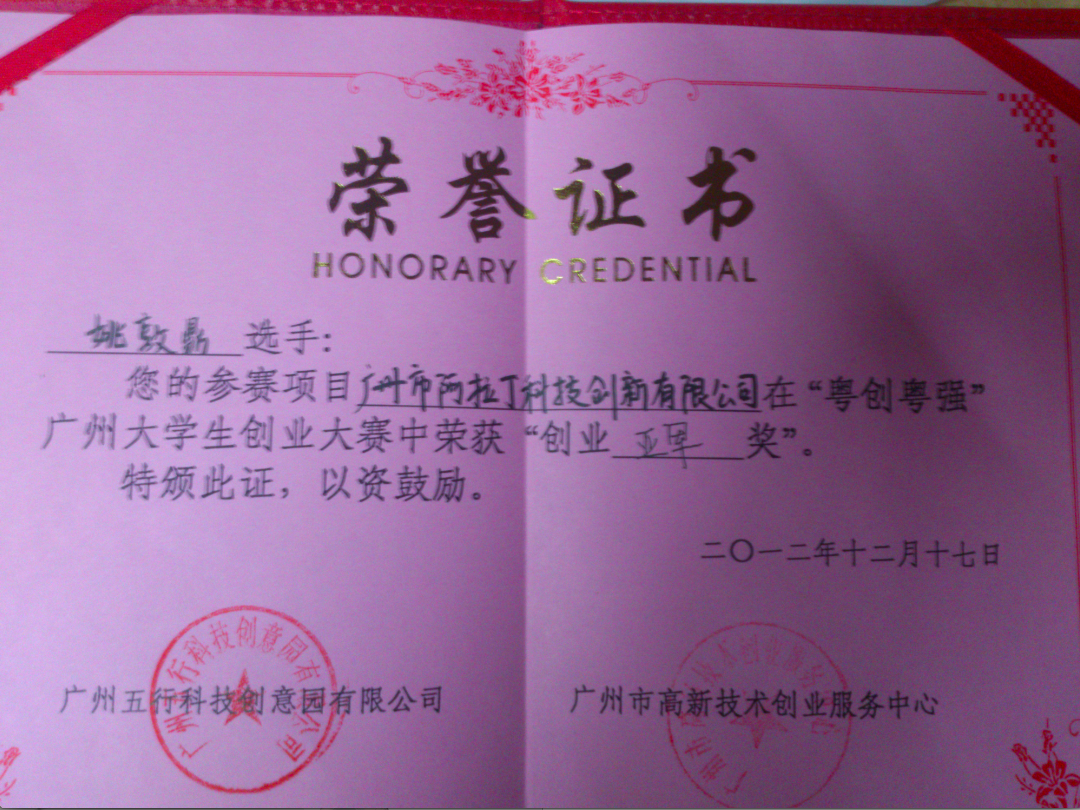 荣誉证书
HONORARY CREDENTIAL
姚敦鼎 选手：
您的参赛项目广州市阿拉丁科技创新有限公司在“粤创粤强”
广州大学生创业大赛中荣获“创业 亚军 奖”。
特颁此证，以资鼓励。
二〇一二年十二月十七日
广州五行科技创意园有限公司
广州市高新技术创业服务中心
广州五行科技创意园有限公司